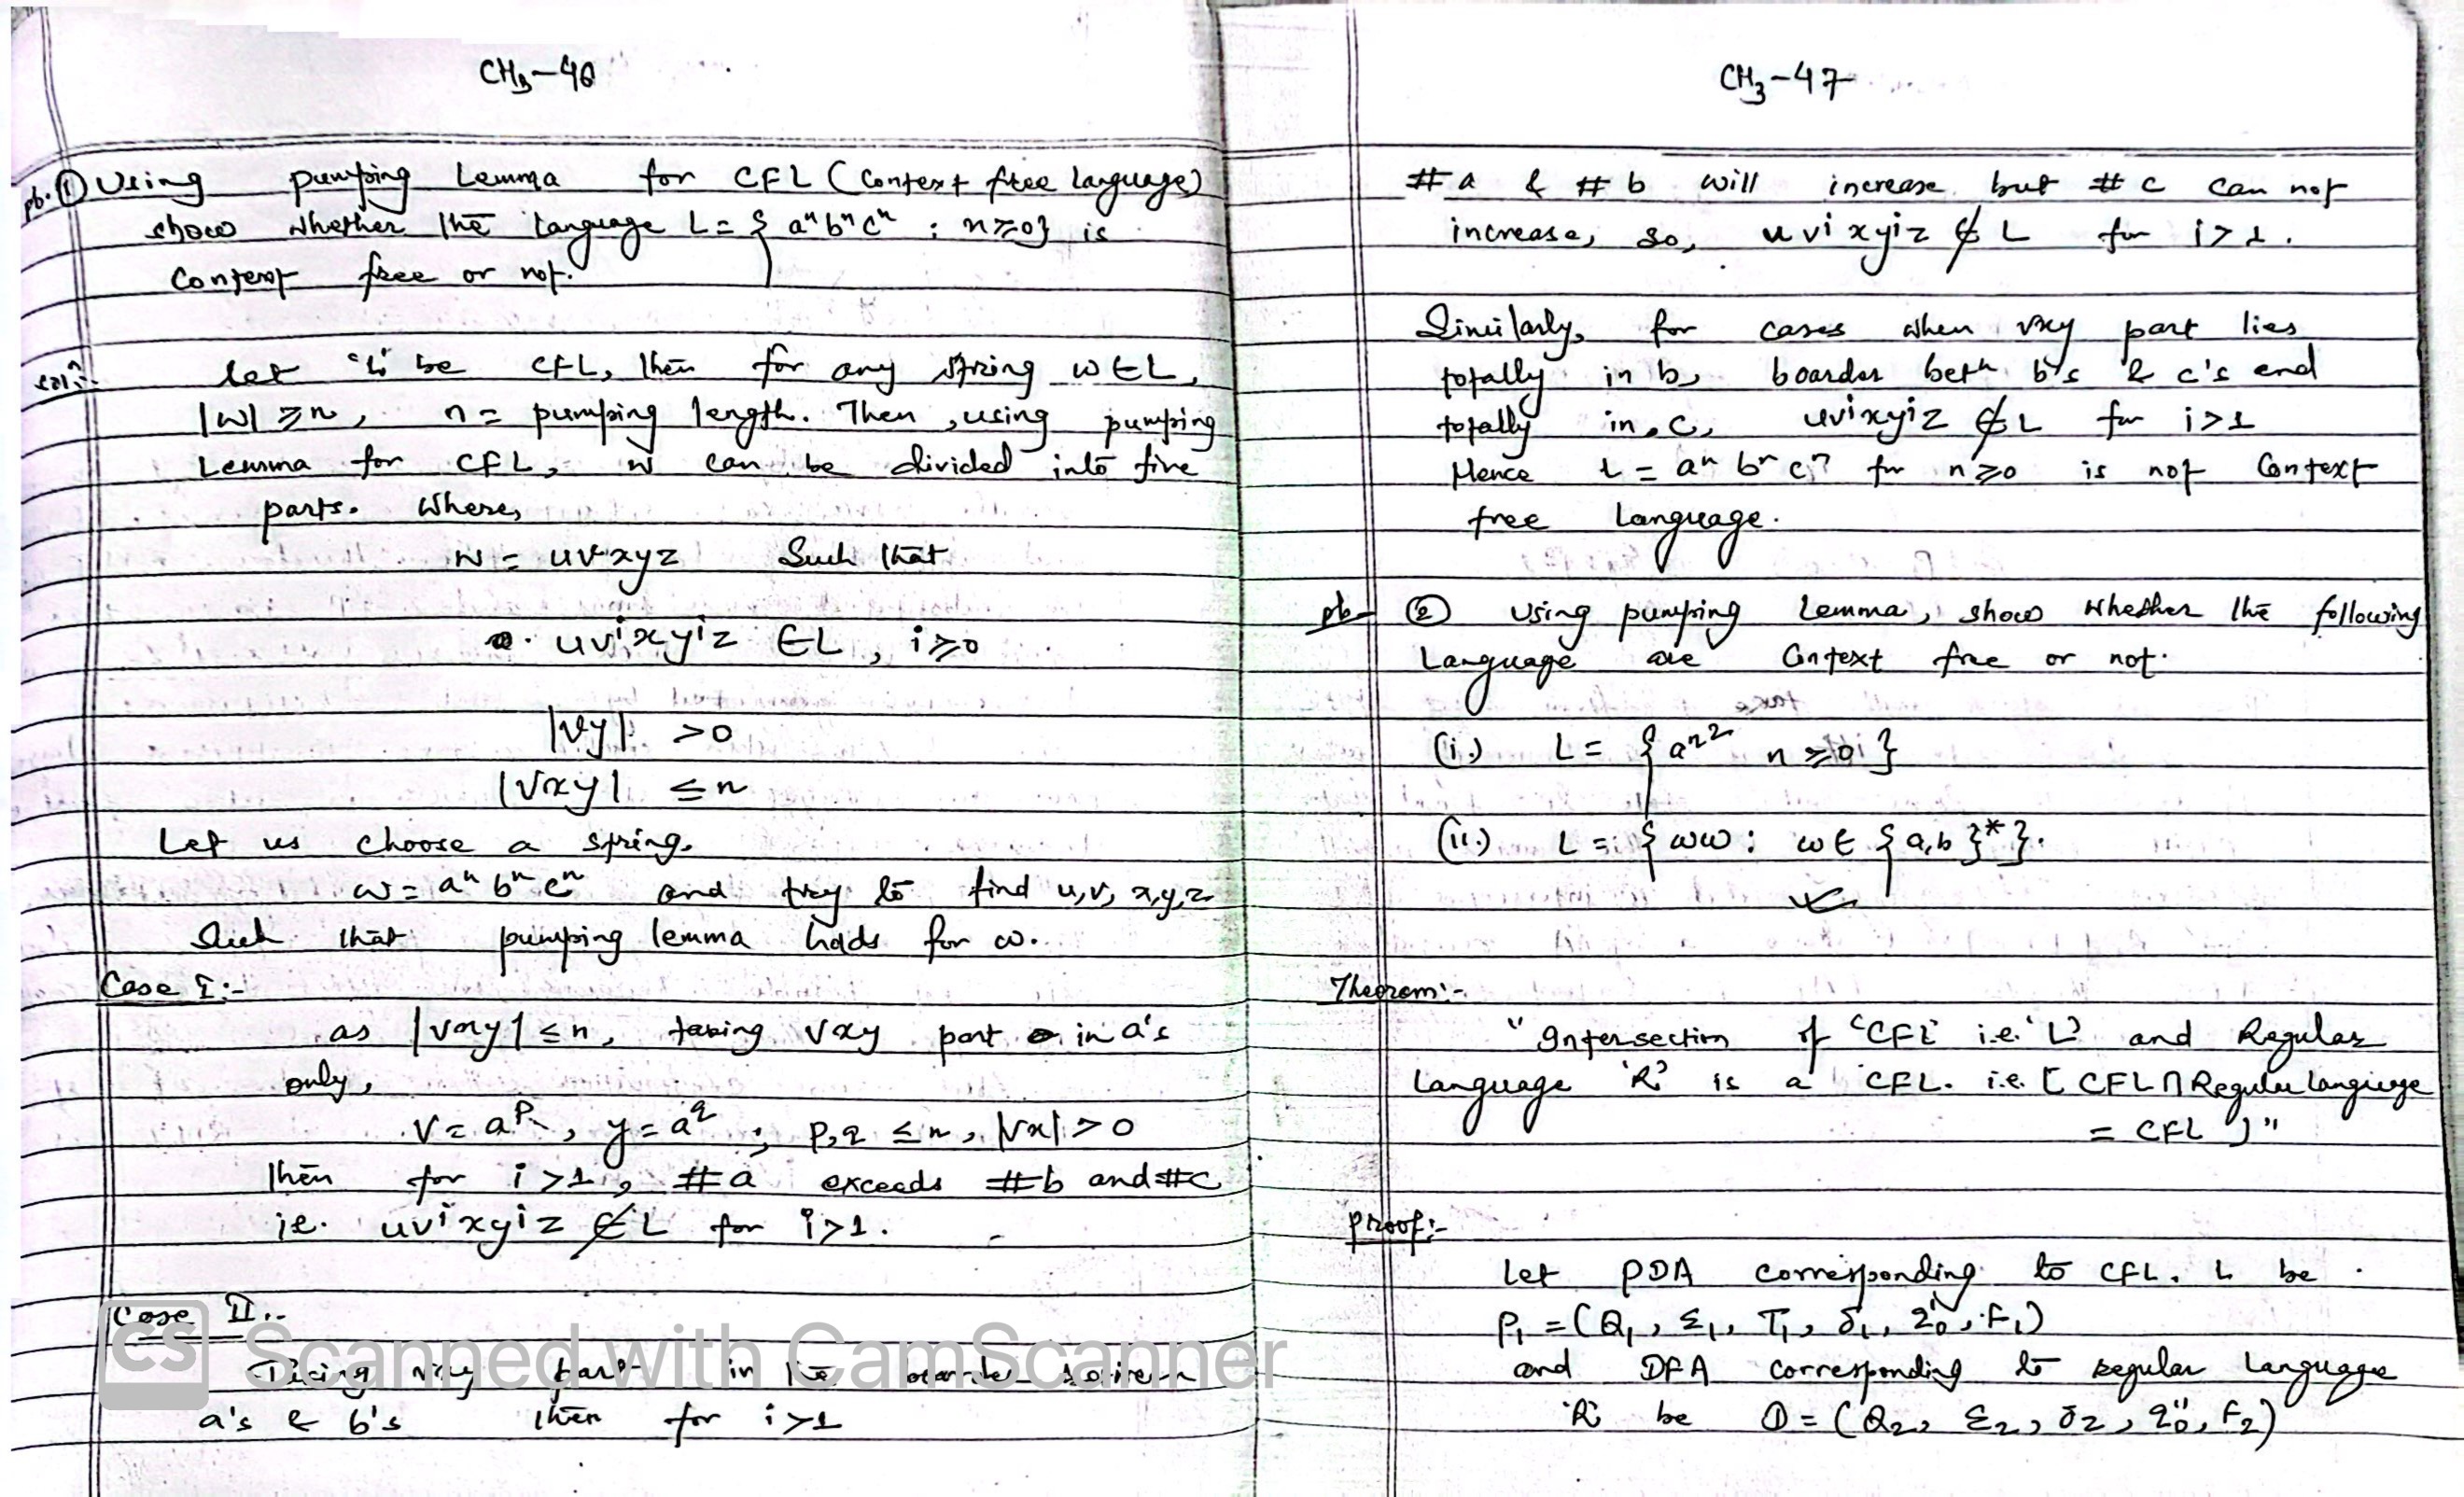 CH3-46
pb. ① Using pumping Lemma for CFL (Context free language)
show whether the language L = { aⁿbⁿcⁿ ; n≥0} is
Context free or not.
solⁿ:-
let 'L' be CFL, then for any string w ∈ L,
|w| ≥ n, n = pumping length. Then, using pumping
Lemma for CFL, w can be divided into five
parts. Where,
w = uvxyz Such that
uvⁱxyⁱz ∈ L, i≥0
|vy| > 0
|vxy| ≤ n
Let us choose a string.
w = aⁿbⁿcⁿ and try to find u,v,x,y,z
Such that pumping lemma holds for w.
Case I:-
as |vxy| ≤ n, taking vxy part in a's
only,
v = aᵖ, y = a^q ; p,q ≤ n, |vx| > 0
then for i>1, #a exceeds #b and #c
ie. uvⁱxyⁱz ∉ L for i>1.
Case II:-
Taking vxy part in the boarder between
a's & b's then for i>1
CS Scanned with CamScanner
CH3-47
#a & #b will increase but #c can not
increase, so, uvⁱxyⁱz ∉ L for i>1.
Similarly, for cases when vxy part lies
totally in b, boarder betⁿ b's & c's and
totally in c, uvⁱxyⁱz ∉ L for i>1
Hence L = aⁿ bⁿ cⁿ for n≥0 is not Context
free Language.
pb- ② Using pumping Lemma, show whether the following
Language are Context free or not.
(i.) L = { a^n² n≥0 }
(ii.) L = { ww : w ∈ {a,b}* }.
Theorem:-
"Intersection of 'CFL' i.e. 'L' and Regular
Language 'R' is a CFL. i.e. [ CFL ∩ Regular Language
= CFL ]"
Proof:-
Let PDA corresponding to CFL. L be
P₁ = (Q₁, Σ₁, Γ₁, δ₁, q₀', F₁)
and DFA corresponding to regular Language
'R' be D = (Q₂, Σ₂, δ₂, q₀'', F₂)